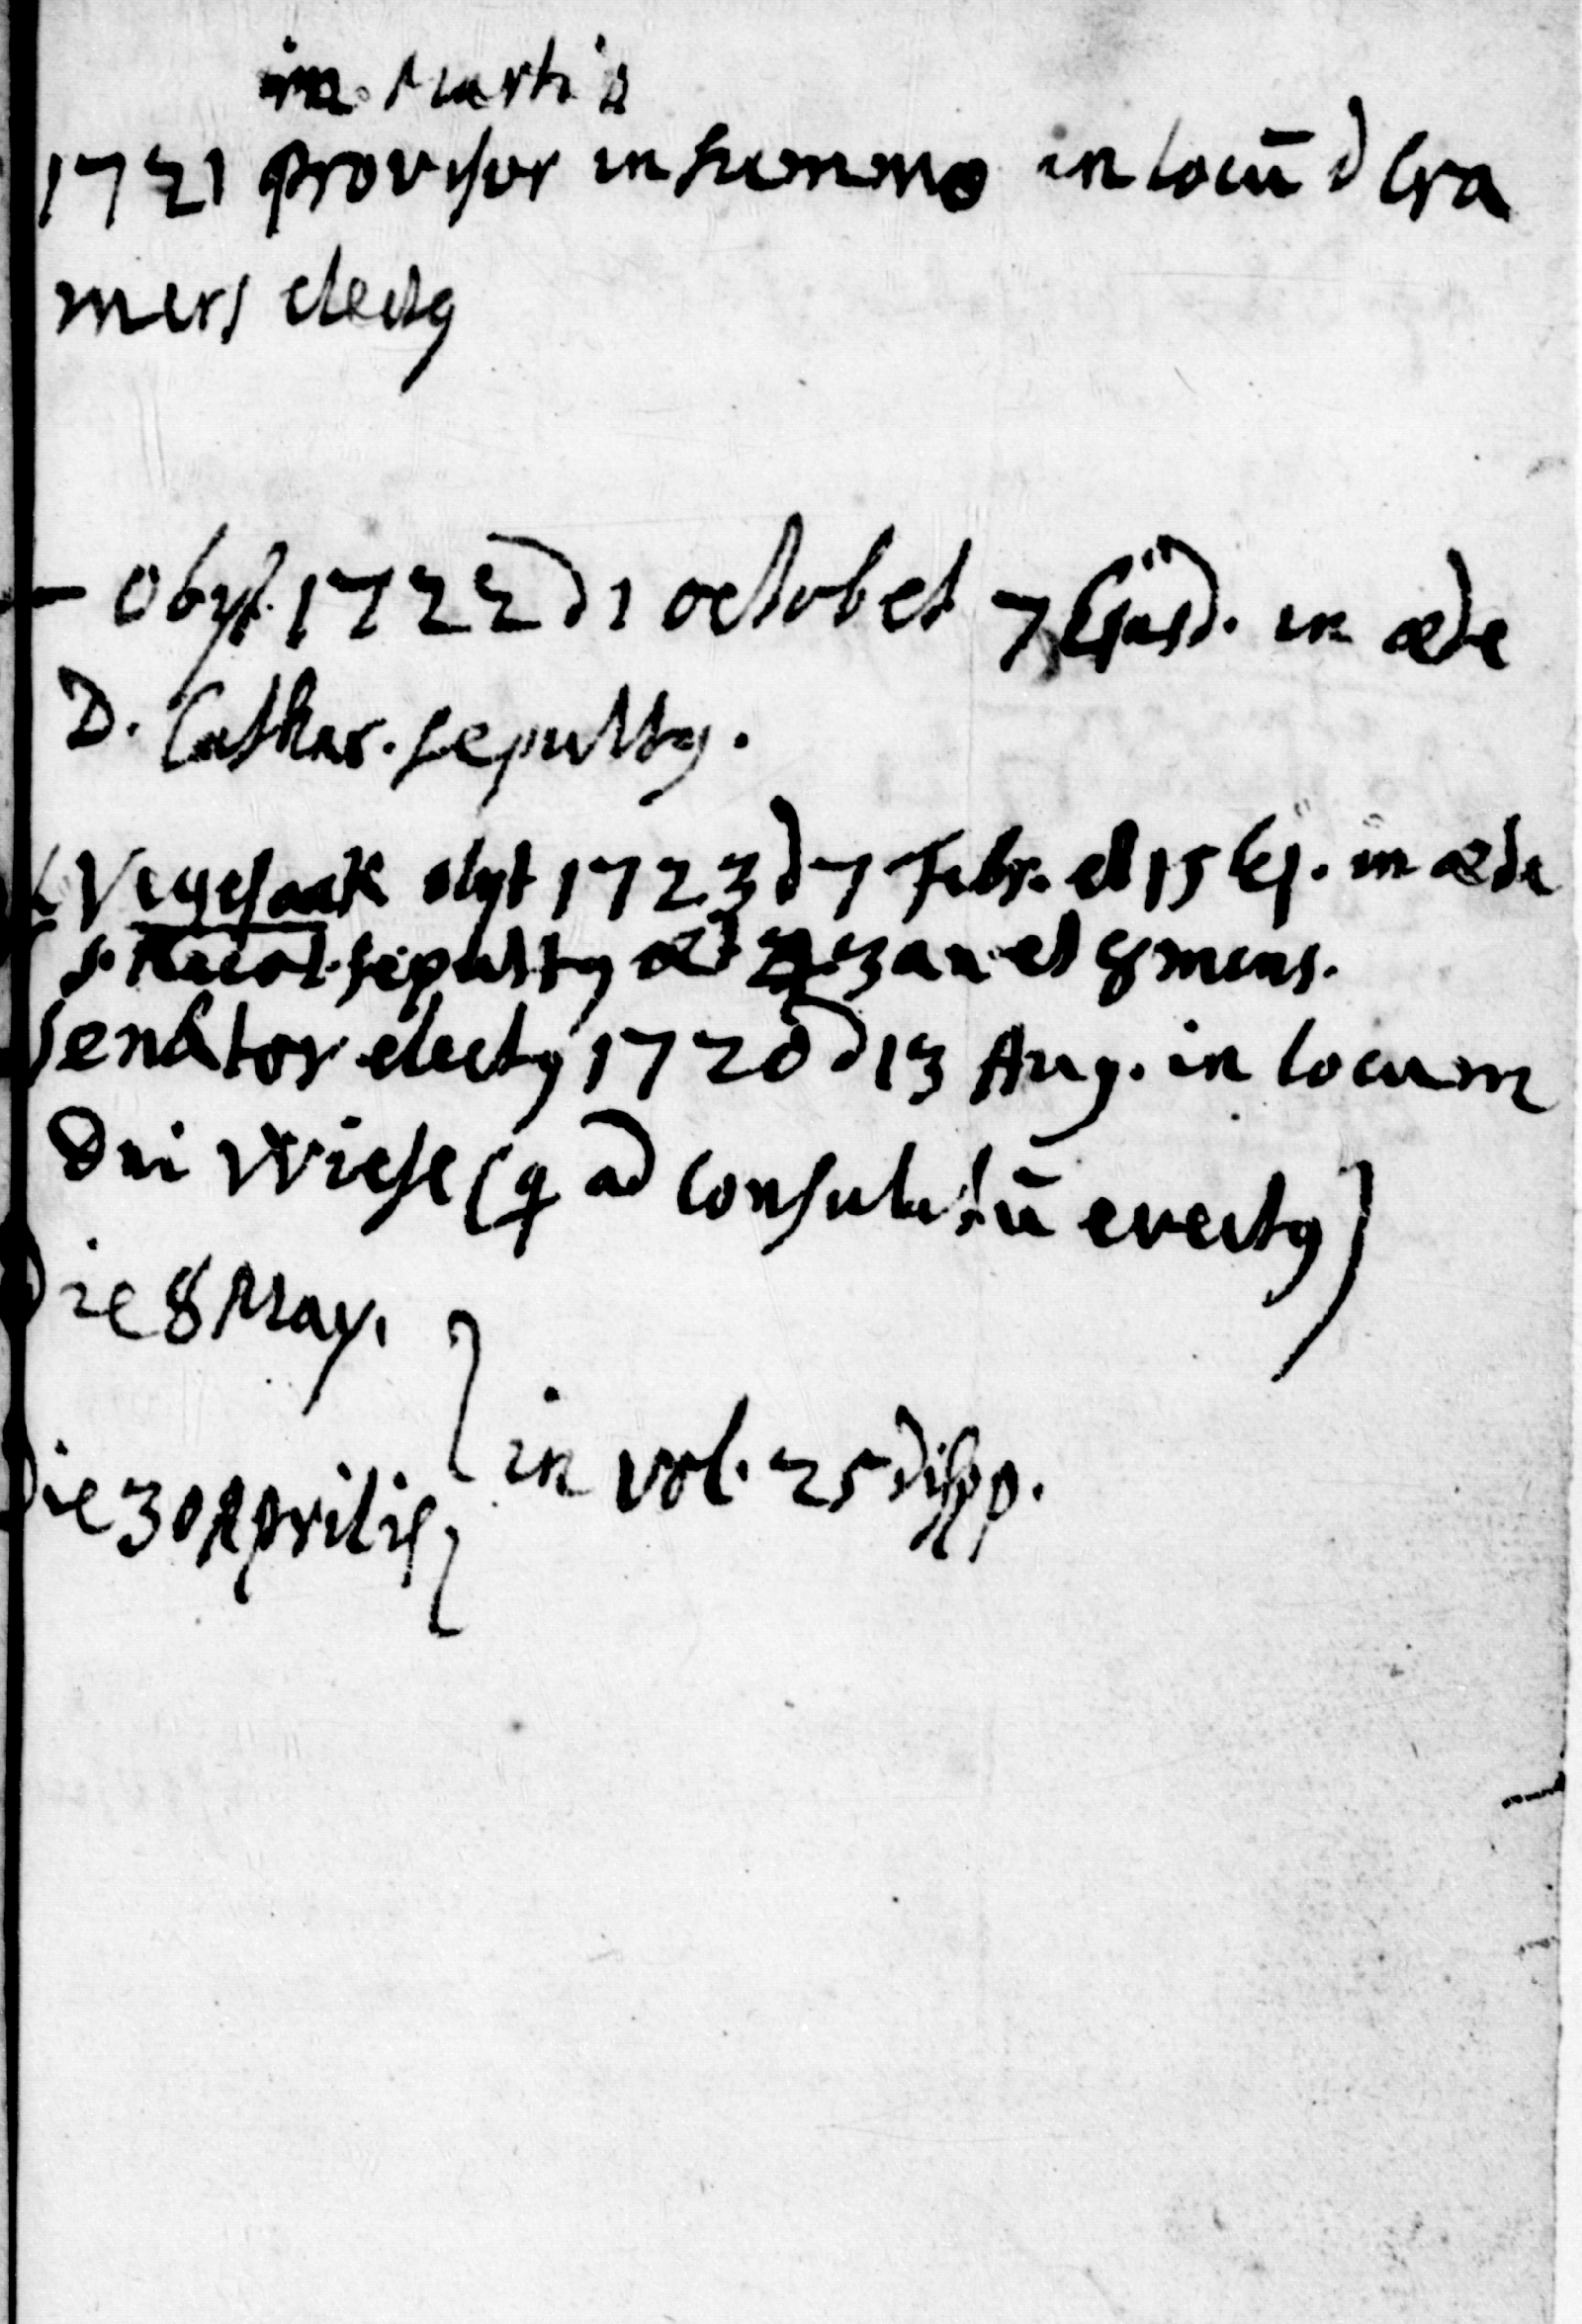 in Martio
1721 provisor in summo in locū d Cra
mers electꝯ
obijt. 1722 d 1 octob et 7 Ejusd. in æde
D. Cathar. sepultꝯ.
Vegesaak obijt 1723 d 7 Febr. et 15 ej. in æde
S. Nicol. sepultꝯ æt 3 an et 8 mens.
Senator electꝯ 1720 d 13 Aug. in locum
Dni Wiese (q ad Consulatū evectꝯ)
Die 8 May.
Die 30 Aprilis } in vol. 25 dispp.